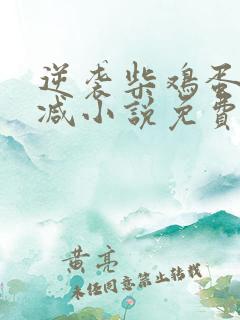 逆袭柴鸡蛋
减小说免费
黄亮
未经同意禁止转载